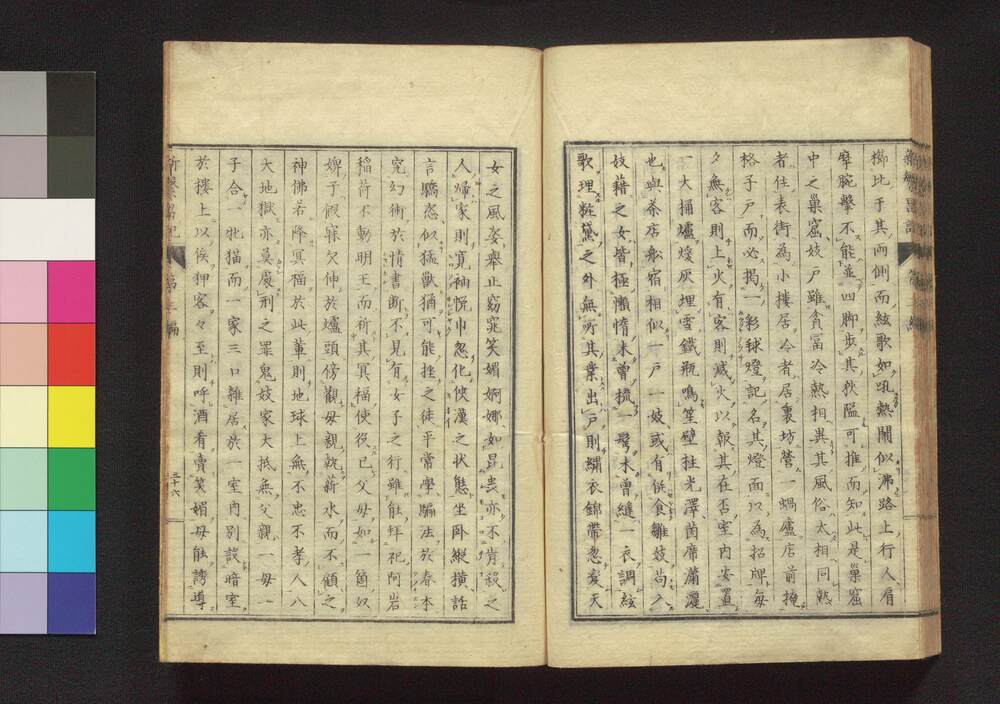 櫛比于其両側而絃歌如吼熱閙似沸路上行人肩
摩腕撃不能並四脚歩其狭隘可推而知此是巣窟
中之巣窟妓戸雖貧冨冷熱相異其風俗太相同熱
者住表街為小樓居冷者居裏坊営一蝸廬店前掩
格子戸而必掲一彩毬燈記名其燈面以為招牌毎
夕無客則上火有客則滅火以報其在否室内安置
一大捅爐燦灰埋雪鐵瓶鳴笙壁柱光澤茵席瀟灑
也與茶店舩宿相似一戸一妓或有
妓藉之女皆極懶惰未曾梳一髩未曾縫一衣調絃
歌理粧黛之外無所其業出戸則繍衣錦帯忽変天
女之風姿擧止窈窕笑媚婀娜如昆虫亦不肯殺之
人帰家則寛袖恍巾忽化侠漢之状態坐卧縦横話
言驕恣似猛獣猶可能挫之徒平常學騙法於春本
究幻術於情書断不見有女子之行雖能拜祀阿岩
稲荷不動明王而祈其冥福使役己父母如一箇奴
婢于假寐欠伸於爐頭傍観母親執薪水而不顧之
神佛若降冥福於此輩則地球上無不忠不孝人八
大地獄亦莫廢刑之罪鬼妓家大抵無父親一母一
子合一牝猫而一家三口雜居於一室内別設暗室
於樓上以俟狎客々至則呼酒肴賣笑媚母能誘導
三十六